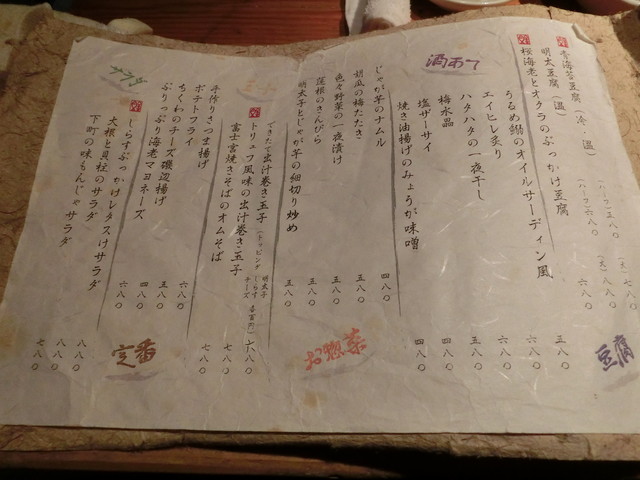 豆腐
青海苔豆腐(冷・温)
六八〇
明太豆腐(温)
(ハーフ)五八〇
桜海老とオクラのぶっかけ豆腐
(ハーフ)六八〇
酒肴
うるめ鰯のオイルサーディン風
五八〇
エイヒレ炙り
六八〇
ハタハタの一夜干し
五八〇
梅水晶
四八〇
塩ザーサイ
四八〇
焼き油揚げのみょうが味噌
お惣菜
じゃが芋のナムル
四八〇
胡瓜の梅たたき
五八〇
色々野菜の一夜漬け
五八〇
蓮根のきんぴら
五八〇
明太子とじゃが芋の細切り炒め
五八〇
できたて出汁巻き玉子
(トッピング 明太子 しらす チーズ
六八〇
トリュフ風味の出汁巻き玉子
七八〇
富士宮焼きそばのオムそば
七八〇
定番
手作りさつま揚げ
六八〇
ポテトフライ
五八〇
ちくわのチーズ磯辺揚げ
四八〇
ぷりっぷり海老マヨネーズ
六八〇
サラダ
しらすぶっかけレタスサラダ
八八〇
大根と貝柱のサラダ
八八〇
下町の味もんじゃサラダ
七八〇